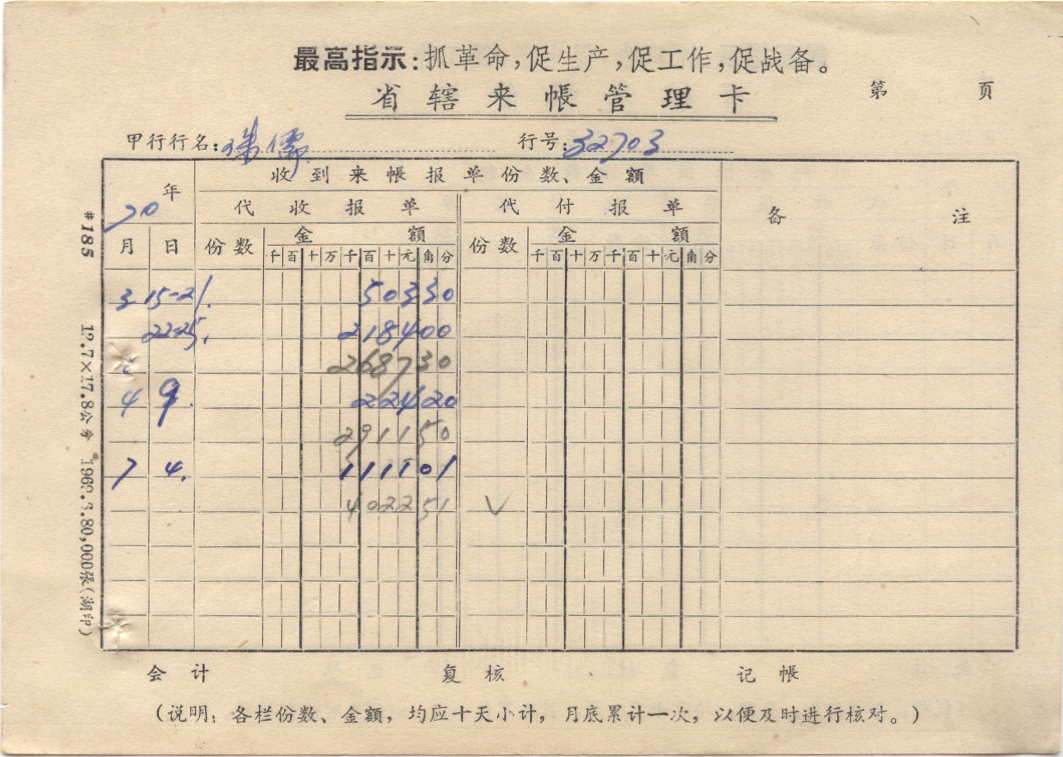 最高指示:抓革命,促生产,促工作,促战备。
省辖来帐管理卡
第 页
甲行行名: 行号:32703
70年
收到来帐报单份数、金额
备 注
代收报单 代付报单
月 日 份数 金额 份数 金额
千百十万千百十元角分 千百十万千百十元角分
3 15-21. 50330
22-25. 218400
268730
4 9. 22420
291150
7 4. 111101
402251 √
会计 复核 记帐
(说明:各栏份数、金额,均应十天小计,月底累计一次,以便及时进行核对。)
#185 19.7×17.8公分 1969.3.80,000张(湖印)